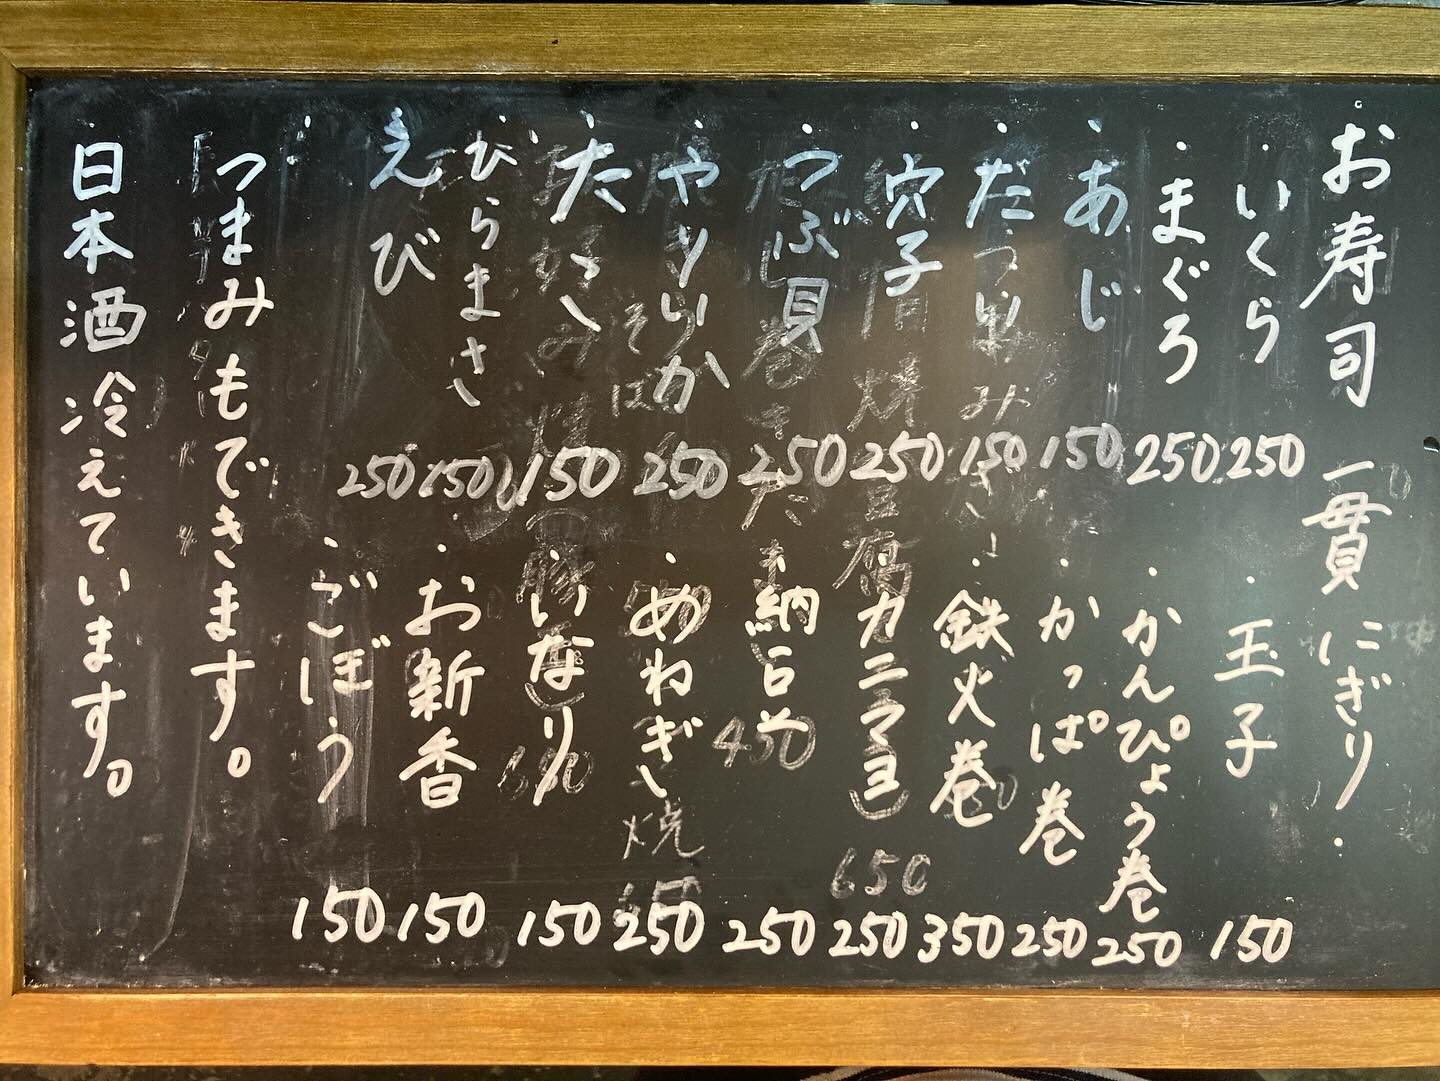 お寿司 一貫 にぎり.
・いくら 250
・まぐろ 250
・あじ 150
・穴子 250
・つぶ貝 250
・やりいか 250
・たこ 150
・ひらまさ 150
・えび 250
・玉子 150
・かんぴょう巻 250
・かっぱ巻 250
・鉄火巻 350
・カニマヨ 250
・納豆 250
・めねぎ 250
・いなり 150
・お新香 150
・ごぼう 150
つまみもできます。
日本酒冷えています。